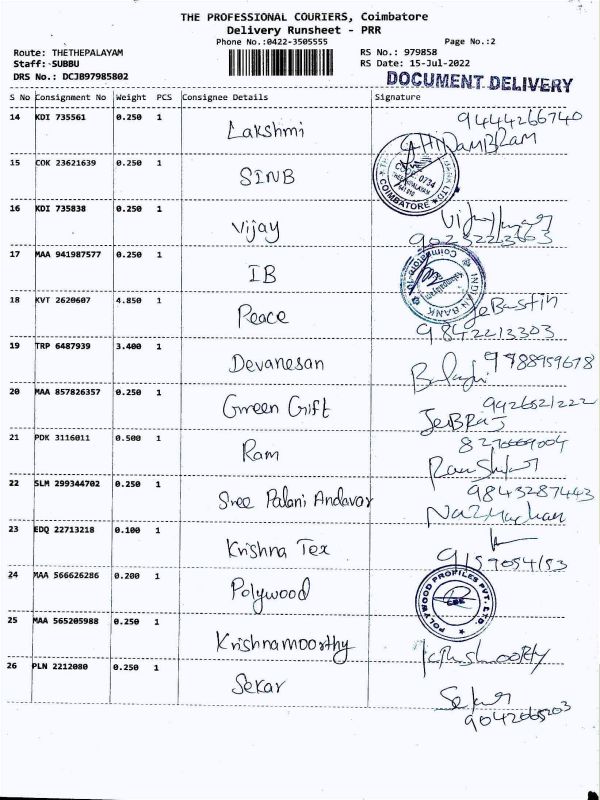 THE PROFESSIONAL COURIERS, Coimbatore
Delivery Runsheet - PRR
Phone No.:0422-3505555 Page No.:2
Route: THETHEPALAYAM RS No.: 979858
Staff: SUBBU RS Date: 15-Jul-2022
DRS No.: DCJB97985802 DOCUMENT DELIVERY
S No Consignment No Weight PCS Consignee Details Signature
14 KDI 735561 0.250 1 Lakshmi 9444266740
CHIDAMBRAM
15 COK 23621639 0.250 1 SINB
COIMBATORE
16 KDI 735838 0.250 1 Vijay
17 MAA 941987577 0.250 1 IB
INDIAN BANK
18 KVT 2620607 4.850 1 Peace JeBastin
9842213303
19 TRP 6487939 3.400 1 Devanesan 9788959678
Balaji
20 MAA 857826357 0.250 1 Green Gift 9926521222
JeBRaJ
21 PDK 3116011 0.500 1 Ram
22 SLM 299344702 0.250 1 Sree Palani Andavar 9843287443
23 EDQ 22713218 0.100 1 Krishna Tex
9159054153
24 MAA 566626286 0.200 1 Polywood
POLYWOOD PROFILES PVT. LTD.
25 MAA 565205988 0.250 1 Krishnamoorthy
26 PLN 2212080 0.250 1 Sekar Sekar
9042665203